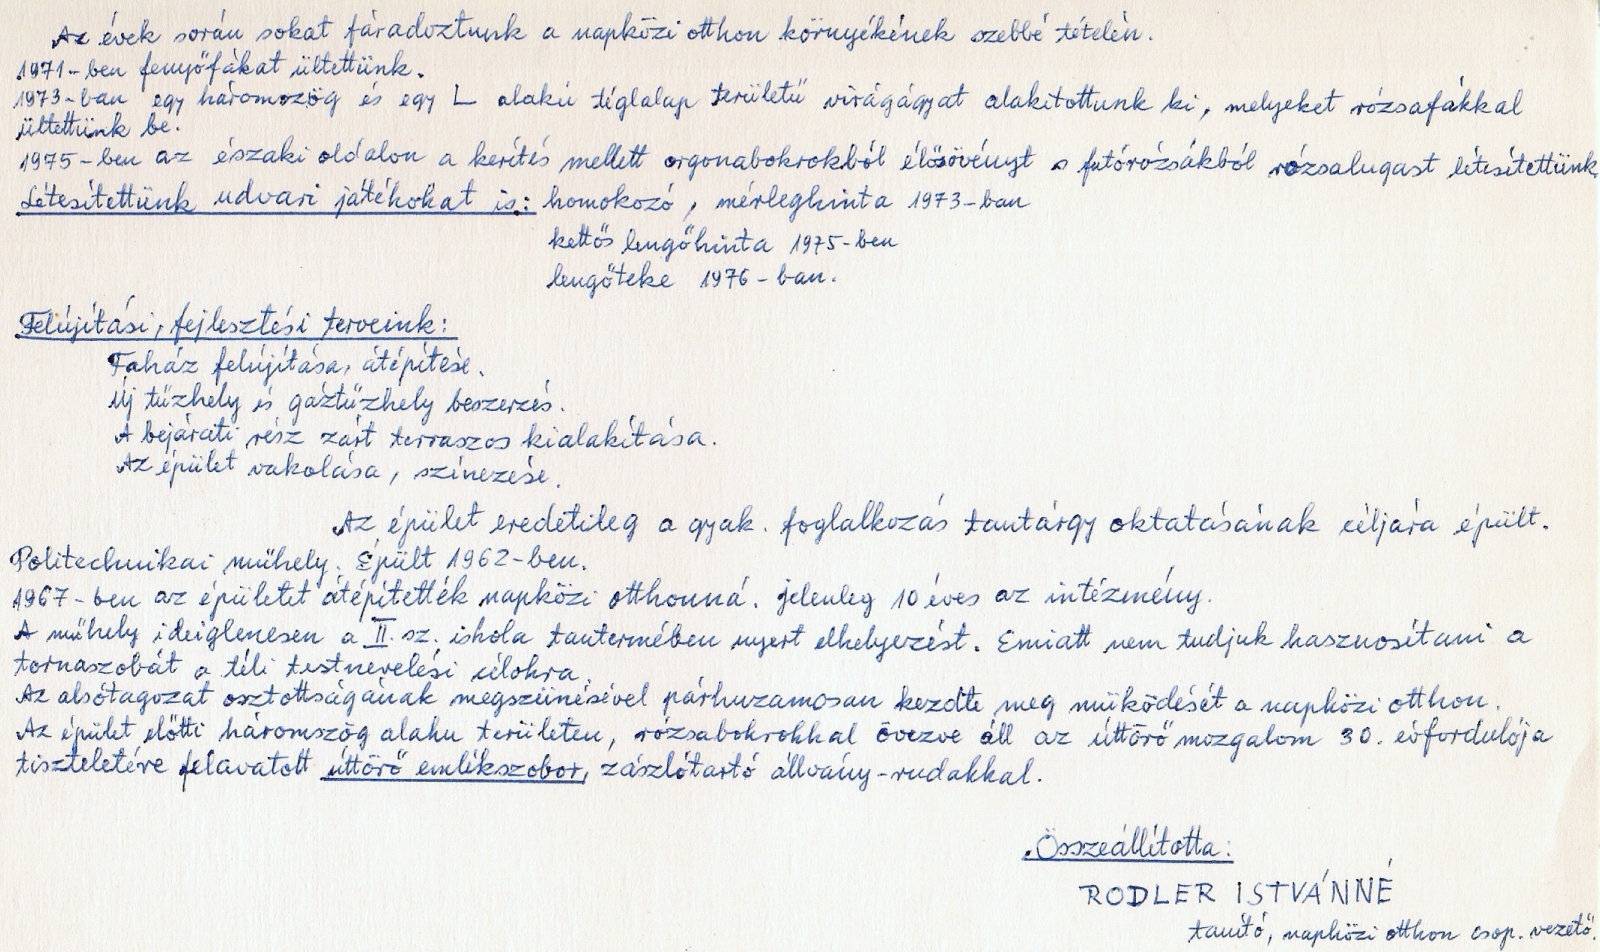 Az évek során sokat fáradoztunk a napközi otthon környékének szebbé tételén.
1971-ben fenyőfákat ültettünk.
1973-ban egy háromszög és egy L alakú téglalap területű virágágyat alakítottunk ki, melyeket rózsafákkal
ültettünk be.
1975-ben az északi oldalon a kerítés mellett orgonabokrokból élősövényt s futórózsákból rózsalugast létesítettünk.
Létesítettünk udvari játékokat is: homokozó, mérleghinta 1973-ban
kettős lengőhinta 1975-ben
lengőteke 1976-ban.
Felújítási, fejlesztési terveink:
Faház felújítása, átépítése.
Új tűzhely és gáztűzhely beszerzés.
A bejárati rész zárt terraszos kialakítása.
Az épület vakolása, színezése.
Az épület eredetileg a gyak. foglalkozás tantárgy oktatásának céljára épült.
Politechnikai műhely. Épült 1962-ben.
1967-ben az épületet átépítették napközi otthonná. jelenleg 10 éves az intézmény.
A műhely ideiglenesen a II. sz. iskola tantermében nyert elhelyezést. Emiatt nem tudjuk hasznosítani a
tornaszobát a téli testnevelési célokra.
Az alsótagozat osztottságának megszünésével párhuzamosan kezdte meg működését a napközi otthon.
Az épület előtti háromszög alaku területen, rózsabokrokkal övezve áll az úttörő mozgalom 30. évfordulója
tiszteletére felavatott úttörő emlékszobor, zászlótartó állvány-rudakkal.
Összeállította:
RODLER ISTVÁNNÉ
tanító, napközi otthon csop. vezető.